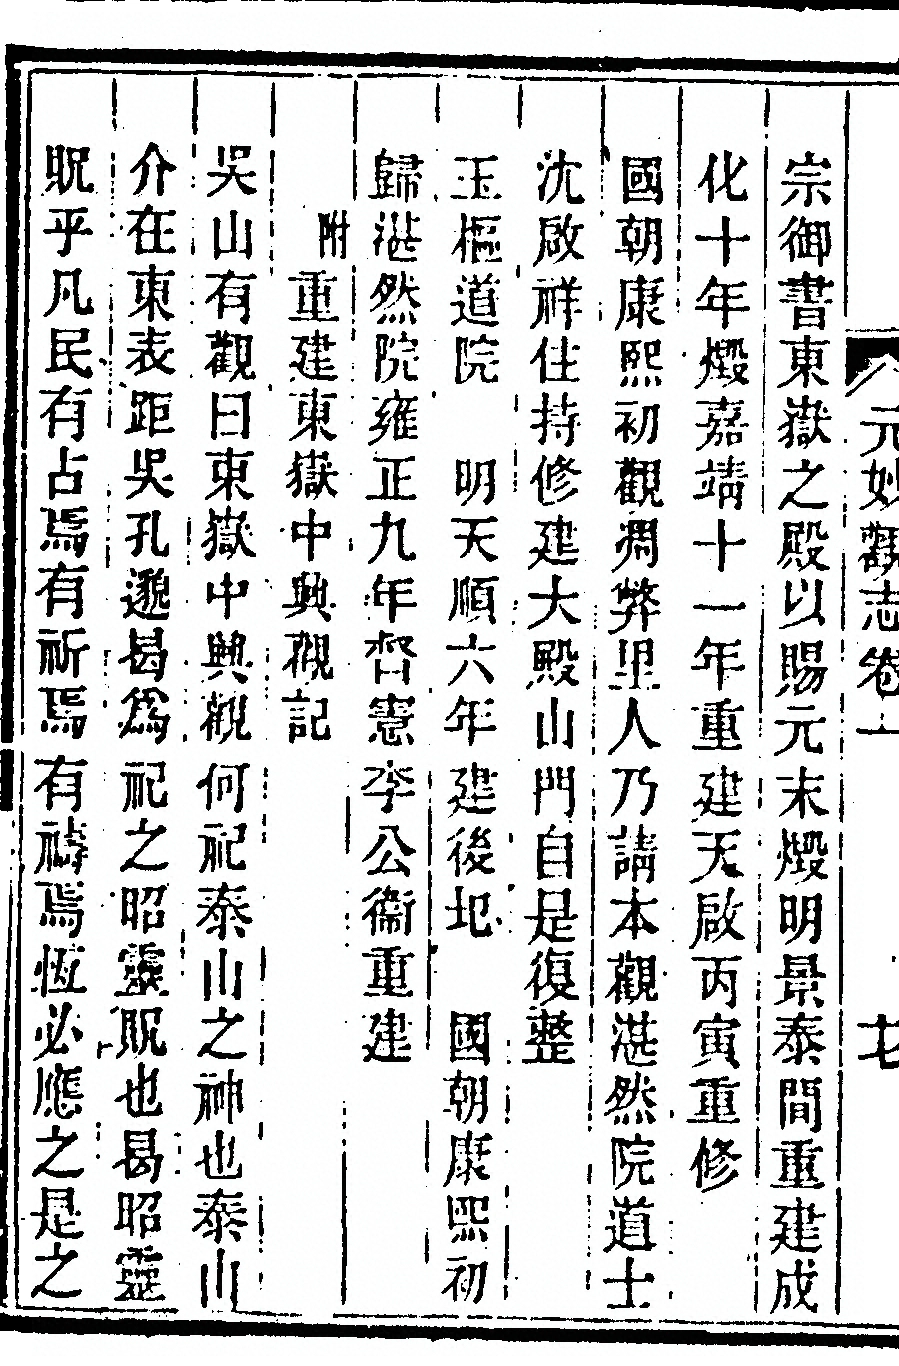 元妙觀志卷十　七
宗御書東嶽之殿以賜元末燬明景泰間重建成
化十年燬嘉靖十一年重建天啟丙寅重修
國朝康熙初觀凋弊里人乃請本觀湛然院道士
沈啟祥住持修建大殿山門自是復整
玉樞道院　明天順六年建後圮　國朝康熙初
歸湛然院雍正九年督憲李公衞重建
附重建東嶽中興觀記
吳山有觀曰東嶽中興觀何祀泰山之神也泰山
介在東表距吳孔邈曷為祀之昭靈貺也曷昭靈
貺乎凡民有占焉有祈焉有禱焉恆必應之是之